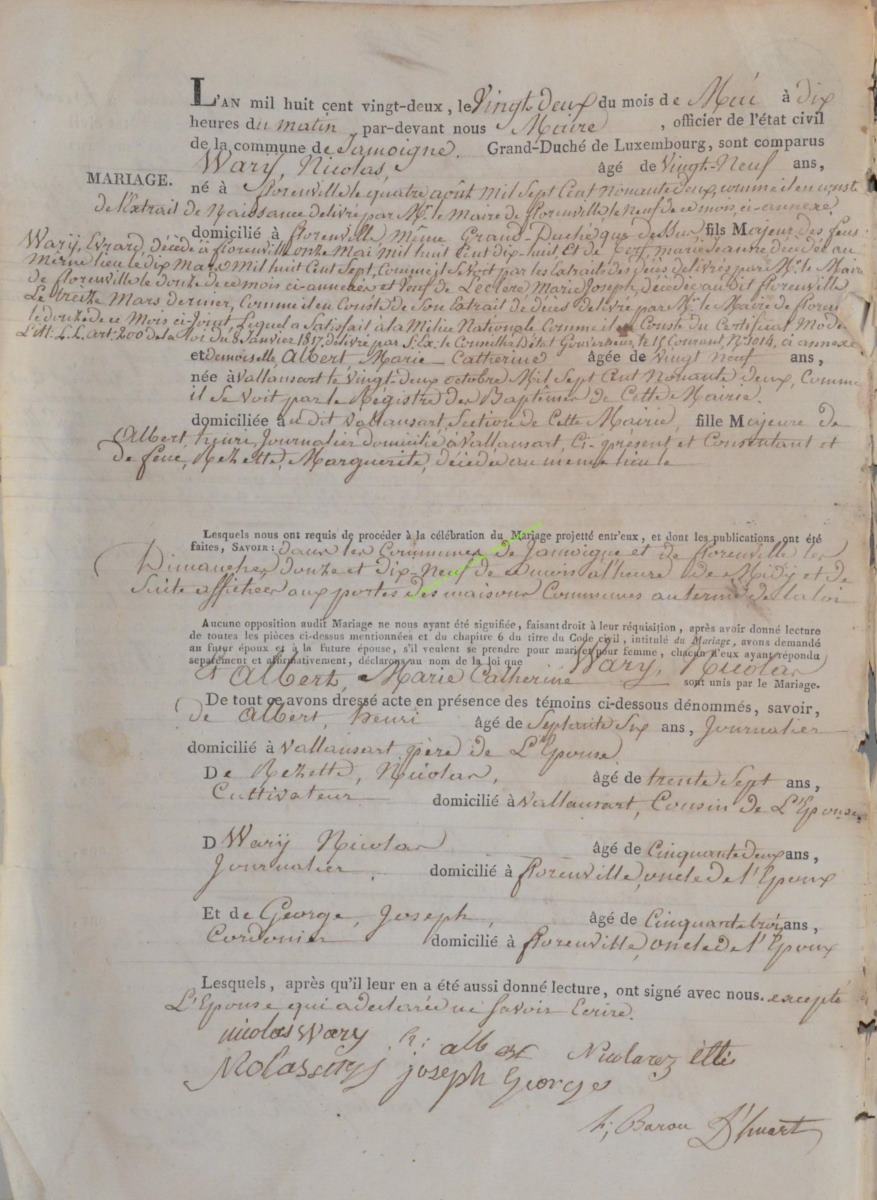 L'AN mil huit cent vingt-deux, le Vingt Deux du mois de Mai à dix
heures du matin par-devant nous Maire, officier de l'état civil
de la commune de Jamoigne. Grand-Duché de Luxembourg, sont comparus
Wary, Nicolas, âgé de Vingt-Neuf ans,
MARIAGE.
né à florenville le quatre août Mil Sept Cent Nonante deux, comme il en conste
de l'Extrait de Naissance delivré par Mr. le Maire de florenville le Neuf de ce mois, ci-annexé.
domicilié à florenville, même Grand-Duché que dessus fils Majeur des feus
Wary, Evrard décédé à florenville onze Mai Mil huit Cent dix-huit, Et de Cerf marie Jeanne décédée au
même lieu le dix Mars Mil huit Cent Sept, Comme il Se voit par les Extraits des décès délivrés par Mr. le Maire
de florenville le douze de ce mois ci-annexés et Veuf de Leclere Marie Joseph, décédée au dit florenville
Le treize Mars dernier, Comme il en Conste de Son Extrait de décès delivré par Mr. le Maire de floren
le douze de ce Mois ci-Joint, Lequel a Satisfait à la Milice Nationale Comme il en Conste du Certificat Modèle
Litt: L.L. art: 200 de la loi du 8 Janvier 1817, délivré par S: Ex. le Conseiller d'état Gouverneur, le 15 Courant, N° 1014, ci annexé
et demoiselle, Albert Marie Catherine âgée de Vingt neuf ans,
née à Vallansart le Vingt-Deux octobre Mil Sept Cent Nonante deux, Comme
il Se Voit par le Régistre des Baptêmes de Cette Mairie.
domiciliée au dit Vallansart, Section de Cette Mairie, fille Majeure de
Albert, henri, Journalier domicilié à Vallansart, Ci-présent et Consentant et
de feue, Rezette, Marguerite, décédée au même lieu le
Lesquels nous ont requis de procéder à la célébration du Mariage projetté entr'eux, et dont les publications ont été
faites, SAVOIR: dans les Communes de Jamoigne et de florenville les
Dimanches douze et dix-Neuf de ce mois à l'heure de Midy et de
Suite affichées aux portes des maisons Communes au terme de la loi
Aucune opposition audit Mariage ne nous ayant été signifiée, faisant droit à leur réquisition, après avoir donné lecture
de toutes les pièces ci-dessus mentionnées et du chapitre 6 du titre du Code civil, intitulé du Mariage, avons demandé
au futur époux et à la future épouse, s'il veulent se prendre pour mari et pour femme, chacun d'eux ayant répondu
separément et affirmativement, déclarons au nom de la loi que Wary, Nicolas
Et Albert, Marie Catherine sont unis par le Mariage.
De tout ce avons dressé acte en présence des témoins ci-dessous dénommés, savoir,
De Albert, henri âgé de Septante Six ans, Journalier
domicilié à Vallansart père de L'Epouse
De Rezette, Nicolas, âgé de trente Sept ans,
Cultivateur domicilié à Vallansart, Cousin de L'Epouse,
D Wary Nicolas âgé de Cinquante deux ans,
Journalier, domicilié à florenville, oncle de l'Epoux
Et de George, Joseph, âgé de Cinquante trois ans,
Cordonier domicilié à florenville, oncle de l'Epoux
Lesquels, après qu'il leur en a été aussi donné lecture, ont signé avec nous. excepté
L'Epouse qui a déclarée ne Savoir Ecrire.
nicolas wary h: albert Nicola rezette
joseph Georges
h; Baron D'huart